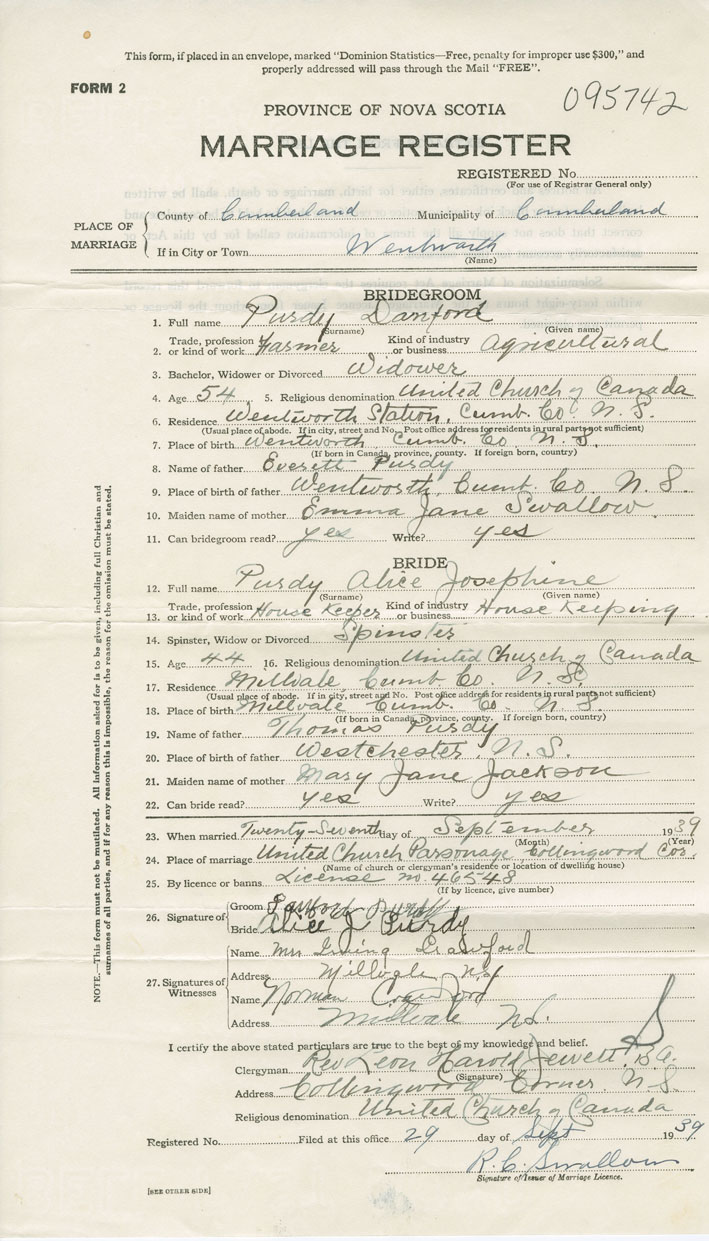 This form, if placed in an envelope, marked "Dominion Statistics—Free, penalty for improper use $300," and
properly addressed will pass through the Mail "FREE".
FORM 2
095742
PROVINCE OF NOVA SCOTIA
MARRIAGE REGISTER
REGISTERED No.
(For use of Registrar General only)
PLACE OF MARRIAGE
County of Cumberland Municipality of Cumberland
If in City or Town Wentworth
(Name)
BRIDEGROOM
1. Full name Purdy Danford
(Surname) (Given name)
2. Trade, profession or kind of work Farmer Kind of industry or business Agricultural
3. Bachelor, Widower or Divorced Widower
4. Age 54 5. Religious denomination United Church of Canada
6. Residence Wentworth Station, Cumb. Co. N. S.
(Usual place of abode. If in city, street and No. Post office address for residents in rural parts not sufficient)
7. Place of birth Wentworth Cumb. Co N. S.
(If born in Canada, province, county. If foreign born, country)
8. Name of father Everett Purdy
9. Place of father Wentworth, Cumb. Co N. S.
10. Maiden name of mother Emma Jane Swallow
11. Can bridegroom read? yes Write? yes
BRIDE
12. Full name Purdy Alice Josephine
(Surname) (Given name)
13. Trade, profession or kind of work House Keeper Kind of industry or business House Keeping
14. Spinster, Widow or Divorced Spinster
15. Age 44 16. Religious denomination United Church of Canada
17. Residence Millvale, Cumb. Co. N. S.
(Usual place of abode. If in city, street and No. Post office address for residents in rural parts not sufficient)
18. Place of birth Millvale Cumb. Co. N. S.
(If born in Canada, province, county. If foreign born, country)
19. Name of father Thomas Purdy
20. Place of birth of father Westchester, N. S.
21. Maiden name of mother Mary Jane Jackson
22. Can bride read? yes Write? yes
23. When married Twenty-Seventh day of September 1939
(Month) (Year)
24. Place of marriage United Church Parsonage Collingwood Cor.
(Name of church or clergyman's residence or location of dwelling house)
25. By licence or banns License no. 46548
(If by licence, give number)
26. Signature of
Groom Danford Purdy
Bride Alice J Purdy
27. Signatures of Witnesses
Name Mrs Irving Crawford
Address Millvale N.S
Name Norman Crawford
Address Millvale N.S.
I certify the above stated particulars are true to the best of my knowledge and belief.
Clergyman Rev Leon Harold Jewett, B.A.
(Signature)
Address Collingwood Corner N. S.
Religious denomination United Church of Canada
Registered No. Filed at this office 29 day of Sept 1939
R. C. Swallow
Signature of Issuer of Marriage Licence.
[SEE OTHER SIDE]
NOTE.—This form must not be mutilated. All information asked for is to be given, including full Christian and
surnames of all parties, and if for any reason this is impossible, the reason for the omission must be stated.